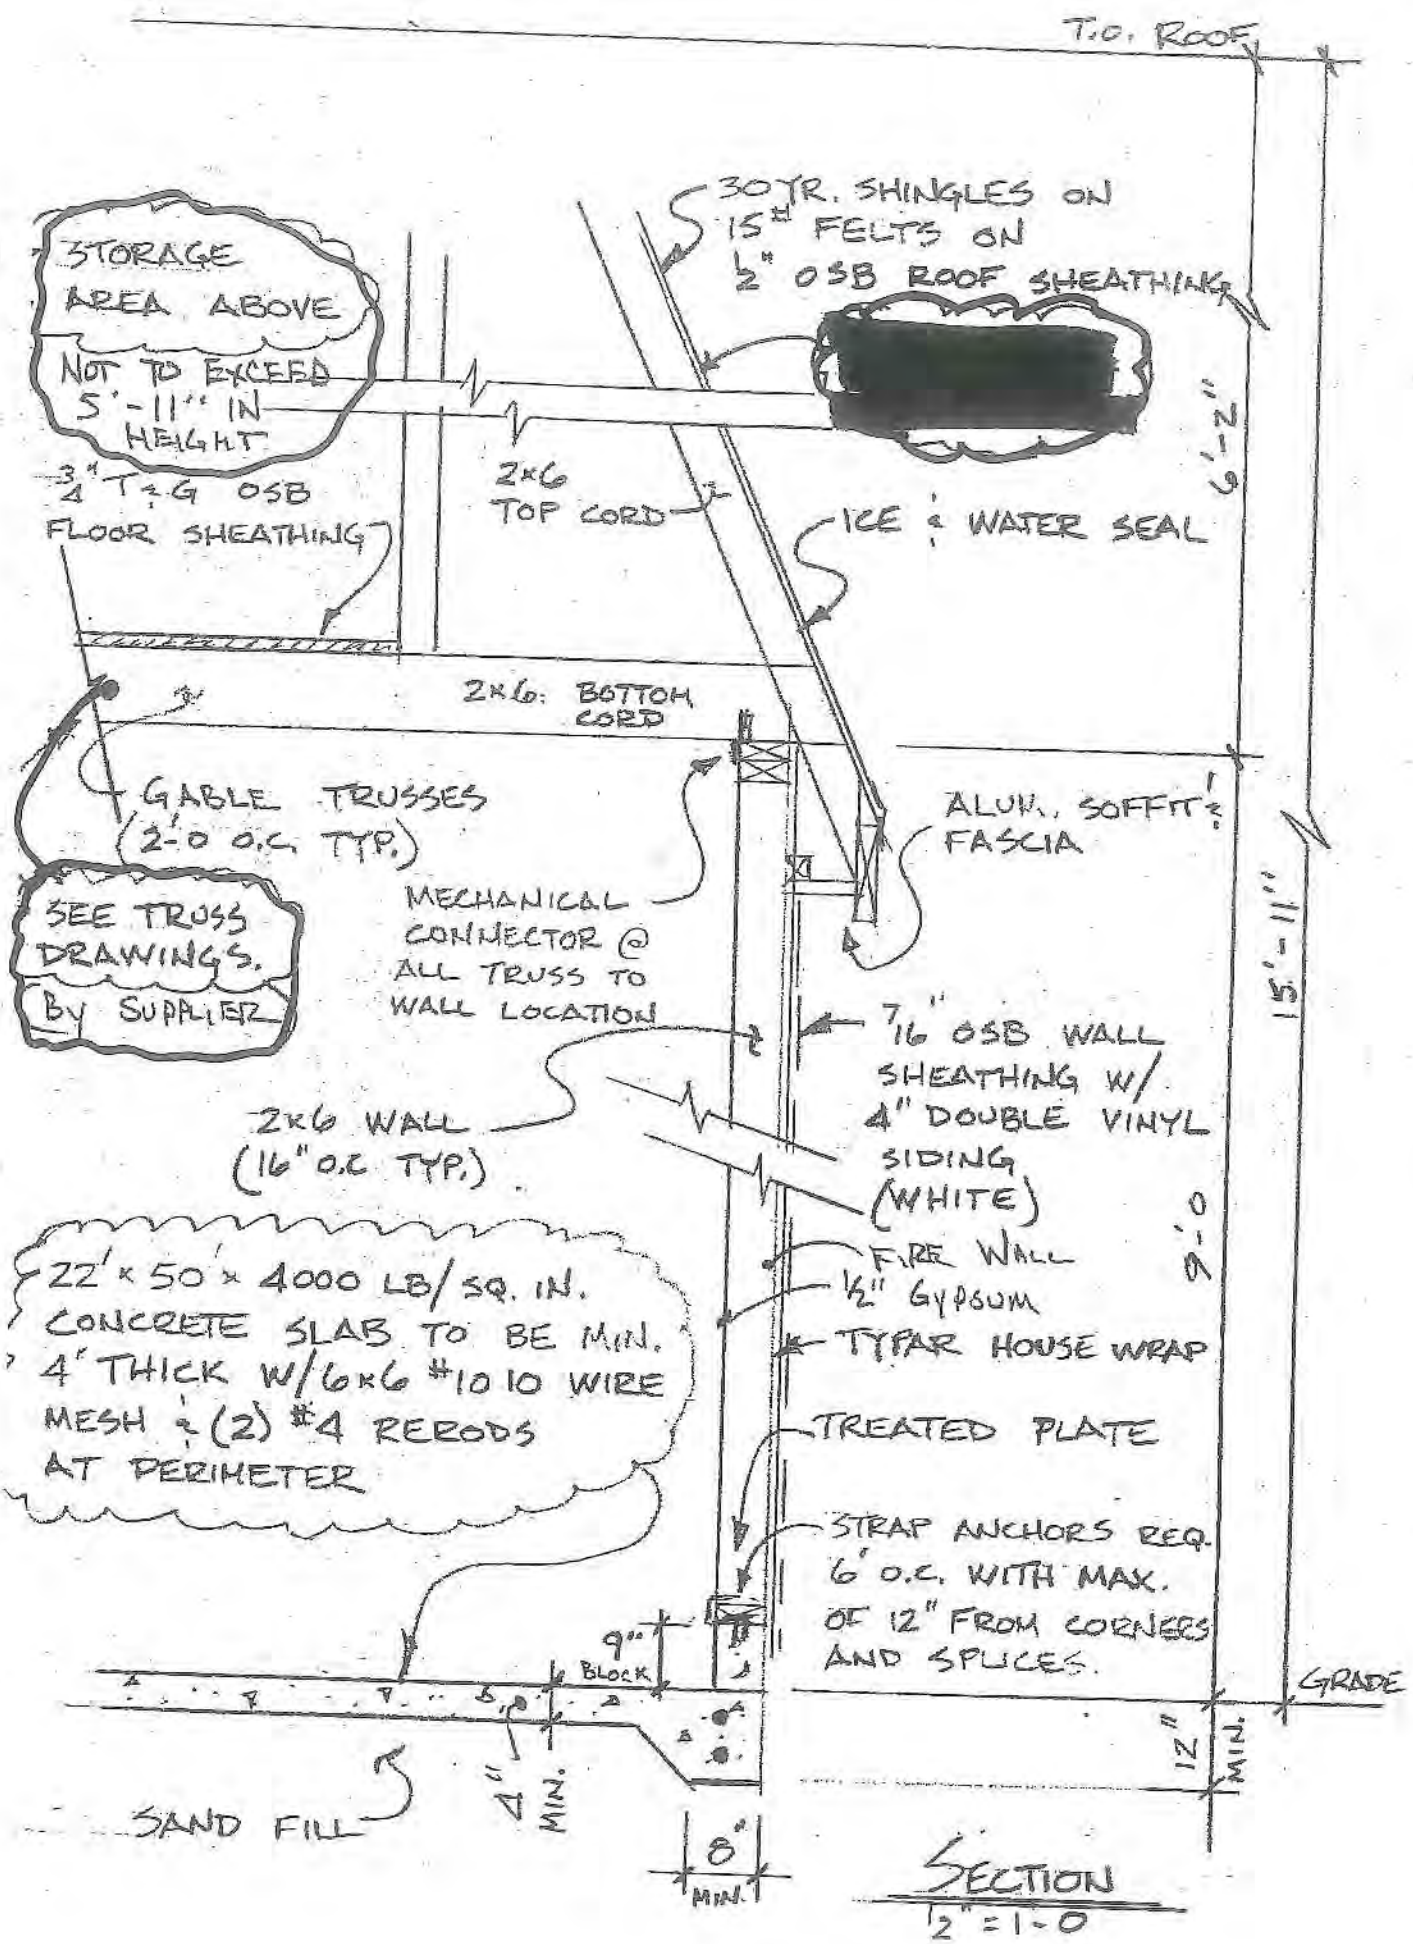 T.O. ROOF
30 YR. SHINGLES ON
15# FELTS ON
1/2" OSB ROOF SHEATHING
STORAGE
AREA ABOVE
NOT TO EXCEED
5'-11" IN
HEIGHT
3/4" T&G OSB
FLOOR SHEATHING
2x6
TOP CORD
ICE & WATER SEAL
6'-2"
2x6 BOTTOM
CORD
GABLE TRUSSES
(2'-0 O.C. TYP.)
SEE TRUSS
DRAWINGS.
BY SUPPLIER
MECHANICAL
CONNECTOR @
ALL TRUSS TO
WALL LOCATION
ALUM. SOFFIT &
FASCIA
15'-11"
7/16" OSB WALL
SHEATHING W/
4" DOUBLE VINYL
SIDING
(WHITE)
2x6 WALL
(16" O.C TYP.)
9'-0
FIRE WALL
1/2" GYPSUM
TYPAR HOUSE WRAP
22' x 50' x 4000 LB/SQ. IN.
CONCRETE SLAB TO BE MIN.
4" THICK W/6x6 #10 10 WIRE
MESH & (2) #4 RERODS
AT PERIMETER
TREATED PLATE
STRAP ANCHORS REQ.
6' O.C. WITH MAX.
OF 12" FROM CORNERS
AND SPLICES.
9"
BLOCK
GRADE
12"
MIN.
4"
MIN.
SAND FILL
8"
MIN.
SECTION
1/2" = 1-0